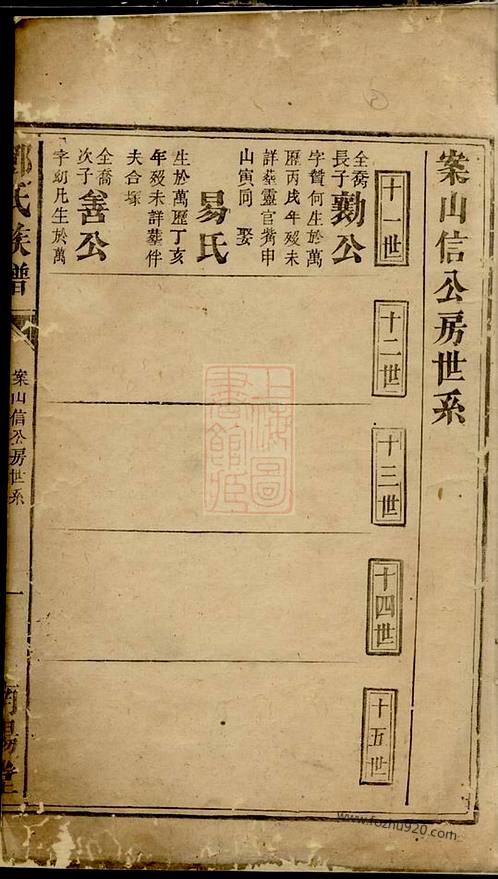 案山信公房世系
十一世
十二世
十三世
十四世
十五世
全喬
長子勷公
字贊何生於萬
歷丙戌年歿未
詳葬靈官嘴申
山寅向 娶
易氏
生於萬歷丁亥
年歿未詳葬伴
夫合塚
全喬
次子
公
字幼凡生於萬
氏族譜
案山信公房世系
一
南陽堂
上海圖書館藏
www.fozhu920.com